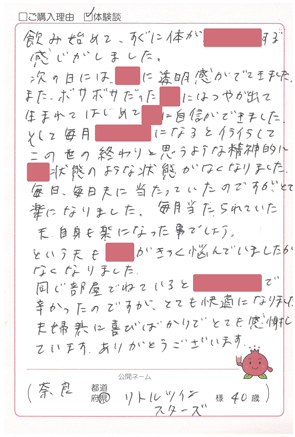 □ご購入理由 ☑体験談
飲み始めて、すぐに体が する
感じがしました。
次の日には に透明感がでてきました
また、ボサボサだった にはつやが出て
生まれてはじめて に自信ができました。
そして毎月 になるとイライラして
この世の終わりと思うような精神的に
状態のような状態がなくなりました
毎日、毎日夫に当たっていたのですがとて
楽になりました。毎月当たられていた
夫自身も楽になった事でしょう。
という夫も がきつく悩んでいましたが
なくなりました
同じ部屋でねていると で
辛かったのですが、とても快適になりました
夫婦共に喜びばかりでとても感謝し
ています。ありがとうございます
公開ネーム
(奈良 都道府県 リトルツインスターズ 様 40歳)